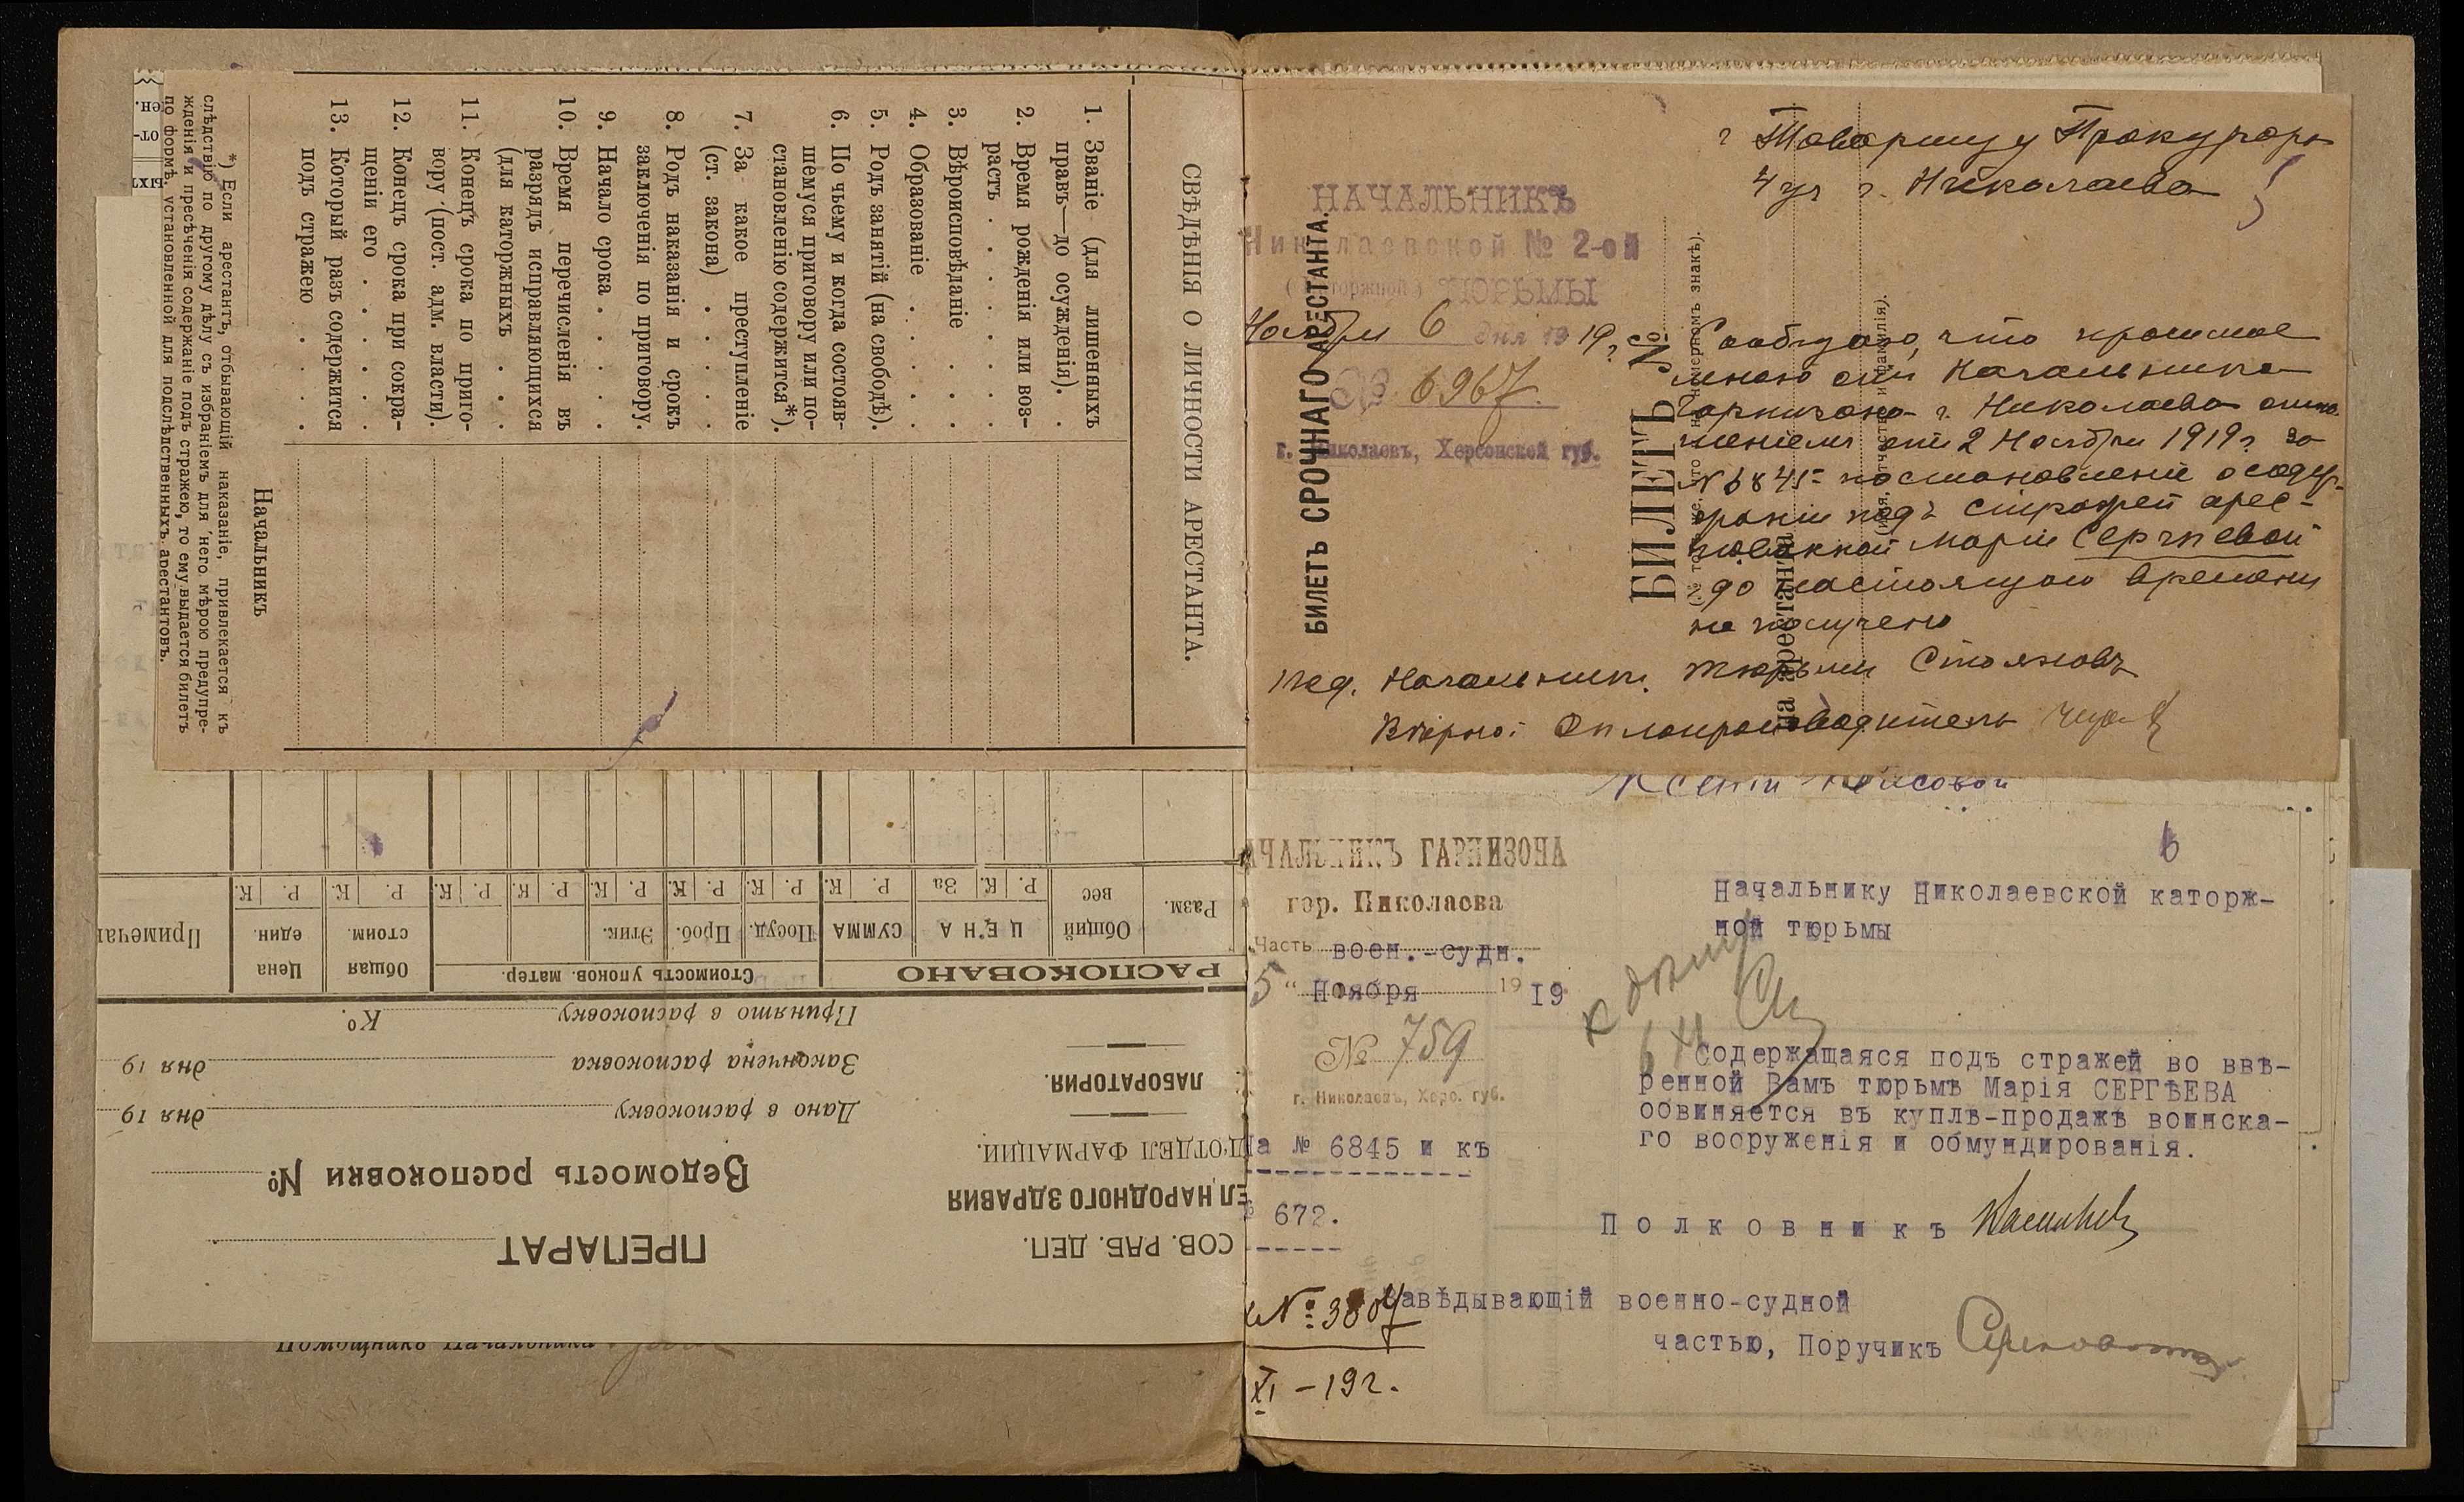 СВѢДѢНІЯ О ЛИЧНОСТИ АРЕСТАНТА.
1. Званіе (для лишенныхъ
правъ—до осужденія). .
2. Время рожденія или воз-
растъ . . . . . . .
3. Вѣроисповѣданіе . . .
4. Образованіе . . . . .
5. Родъ занятій (на свободѣ).
6. По чьему и когда состояв-
шемуся приговору или по-
становленію содержится*).
7. За какое преступленіе
(ст. закона) . . . . .
8. Родъ наказанія и срокъ
заключенія по приговору.
9. Начало срока . . . . .
10. Время перечисленія въ
разрядъ исправляющихся
(для каторжныхъ . . .
11. Конецъ срока по приго-
вору (пост. адм. власти).
12. Конецъ срока при сокра-
щеніи его . . . . . .
13. Который разъ содержится
подъ стражею . . . .
Начальникъ
*) Если арестантъ, отбывающій наказаніе, привлекается къ
слѣдствію по другому дѣлу съ избраніемъ для него мѣрою предупре-
жденія и пресѣченія содержаніе подъ стражею, то ему выдается билетъ
по формѣ, установленной для подслѣдственныхъ арестантовъ.
СОВ. РАБ. ДЕП.
ЕЛ НАРОДНОГО ЗДРАВИЯ
ДОТДЕЛ ФАРМАЦИИ.
ЛАБОРАТОРИЯ.
ПРЕПАРАТ
Ведомость распоковки №
Дано в распоковку дня 19
Закончена распоковка дня 19
Принято в распоковку К°.
РАСПОКОВАНО
Стоимость упоков. матер.
Общая стоим.
Цена един.
Примечан
Разм.
Общий вес
ЦЕНА
СУММА
Посуд.
Проб.
Этик.
Р. К. За Р. К. Р. К. Р. К. Р. К. Р. К. Р. К. Р. К. Р. К.
Помощникъ Начальника
г Товарищу Прокурора
4 уч г. Николаева
НАЧАЛЬНИКЪ
Николаевской № 2-ой
(каторжной) ТЮРЬМЫ
Ноября 6 дня 1919 г
№ 6967.
г. Николаевъ, Херсонской губ.
БИЛЕТЪ СРОЧНАГО АРЕСТАНТА.
БИЛЕТЪ №
на арестанта
Сообщаю, что просимое
мною отъ Начальника
Гарнизона г. Николаева отно
шеніемъ отъ 2 Ноября 1919 г. за
№ 6845 постановленіе о содер-
жаніи подъ стражей арес-
тованной Маріи Сергѣевой
до настоящаго времени
не получено
под. Начальникъ Тюрьмы Стояновъ
Вѣрно: Дѣлопроизводитель
НАЧАЛЬНИКЪ ГАРНИЗОНА
гор. Николаева
Часть воен.-судн.
5 " Ноября 19 19
№ 759
г. Николаевъ, Херс. губ.
На № 6845 и къ
№ 672.
6
Начальнику Николаевской каторж-
ной тюрьмы
к дѣлу
6 XI
Содержащаяся подъ стражей во ввѣ-
ренной Вамъ тюрьмѣ Марія СЕРГѢЕВА
обвиняется въ куплѣ-продажѣ воинска-
го вооруженія и обмундированія.
Полковникъ
Завѣдывающій военно-судной
частью, Поручикъ
№ 3807
XI – 19 г.